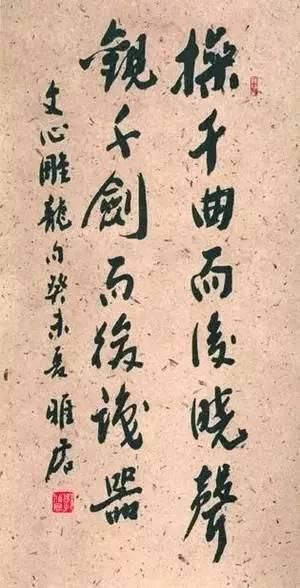 操千曲而後曉聲
觀千劍而後識器
文心雕龍句癸未吾雅居